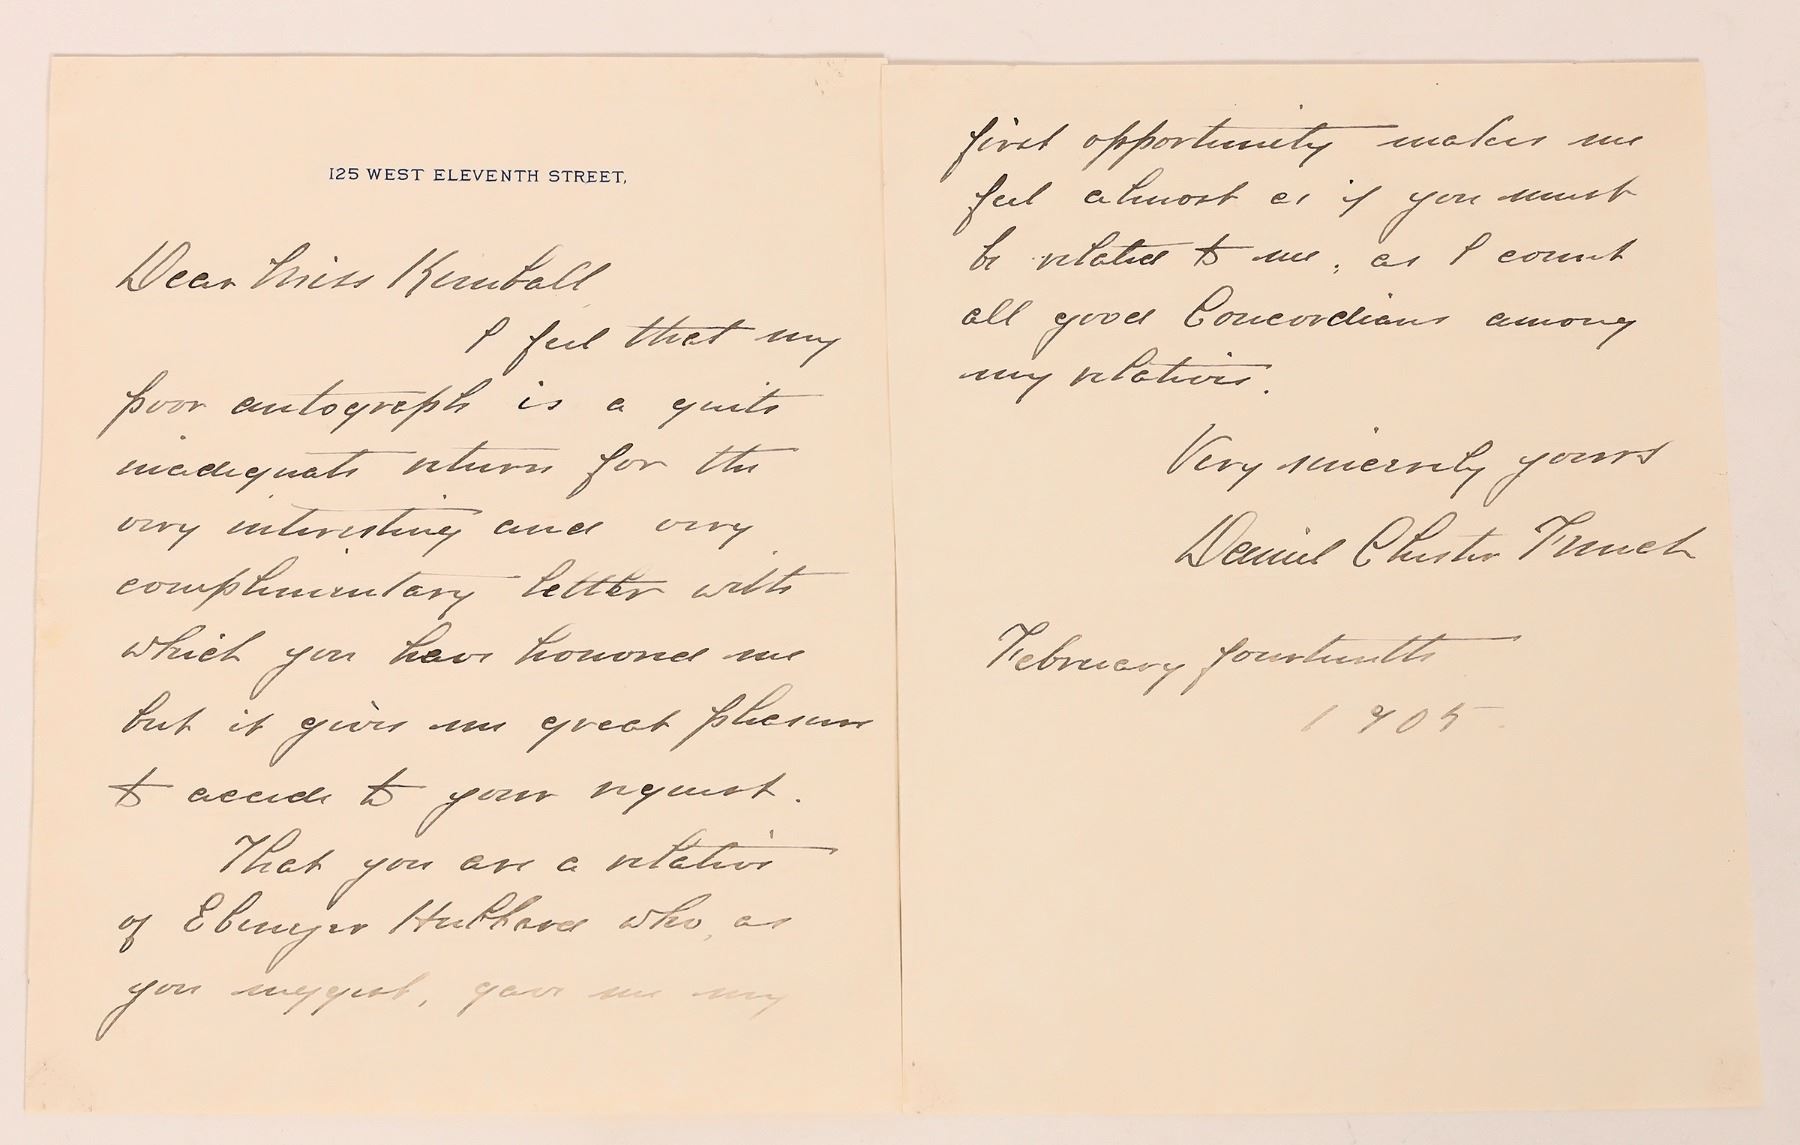 125 WEST ELEVENTH STREET,
Dear Miss Kimball
I feel that my
poor autograph is a quite
inadequate return for the
very interesting and very
complimentary letter with
which you have honored me
but it gives me great pleasure
to accede to your request.
That you are a relative
of Ebenezer Hubbard who, as
you suggest, gave me my
first opportunity makes me
feel almost as if you must
be related to me, as I count
all good Concordians among
my relatives.
Very sincerely yours
Daniel Chester French
February fourteenth
1905